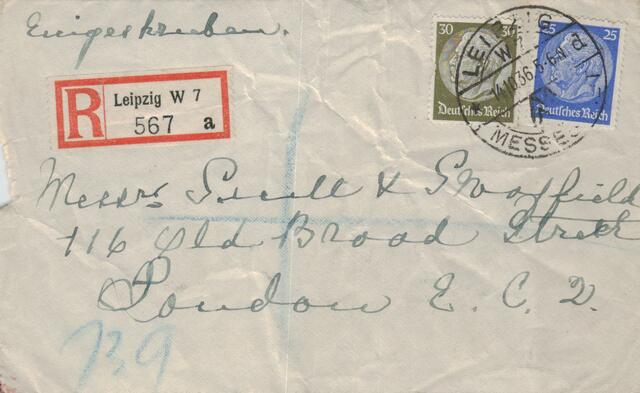 Eingeschrieben.
R Leipzig W 7
567 a
30 30
Deutsches Reich
25 25
Deutsches Reich
LEIPZIG
W
14.10.36
MESSES
Messrs & Swayfield
116 Old Broad Street
London E. C. 2.
739